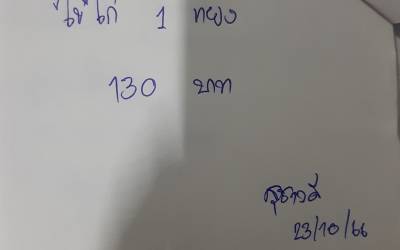 ไข่ไก่ 1 แผง
130 บาท
23/10/66